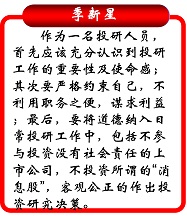 季新星
作为一名投研人员，
首先应该充分认识到投研
工作的重要性及使命感；
其次要严格约束自己，不
利用职务之便，谋求利益
；最后，要将道德纳入日
常投研工作中，包括不参
与投资没有社会责任的上
市公司，不投资所谓的“消
息股”，客观公正的作出投
资研究决策。